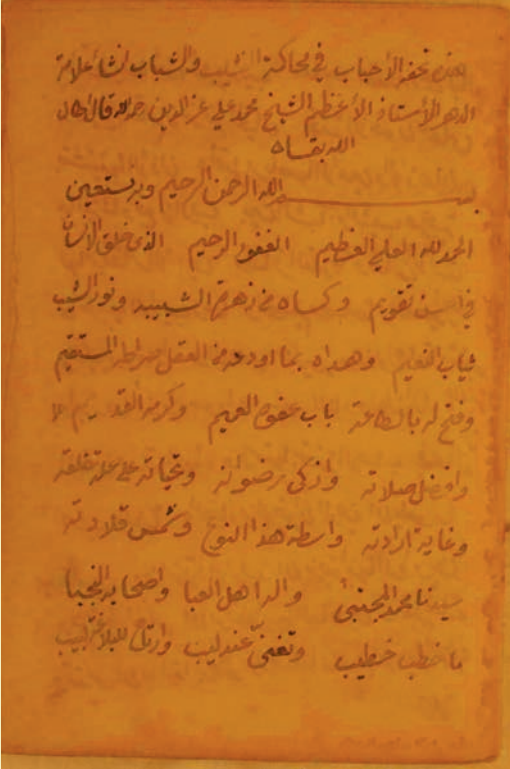 هذه تحفة الأحباب في محاكمة الشيب والشباب انشا علامة
الدهر الأستاذ الأعظم الشيخ محمد علي عز الدين رحمه الله قال اطال
الله بقاه
بسم الله الرحمن الرحيم وبه نستعين
الحمد لله العلي العظيم الغفور الرحيم الذي خلق الانسان
في احسن تقويم وكساه من زهرة الشبيبه ونور الشيب
ثياب النعيم وهداه بما اودعه من العقل صراطه المستقيم
وفتح له بالطاعة باب عفوه العميم وكرمه القديم
وافضل صلاته وازكى رضوانه وتحياته على علة خلقه
وغاية ارادته واسطة هذا النوع وشمس قلادته
سيدنا محمد المجتبى واله اهل العبا واصحابه النجبا
ما خطب خطيب وتغنى عندليب وارتاح للبلاغة لبيب